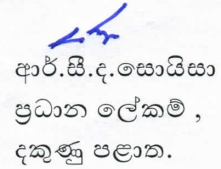 ආර්.සී.ද.සොයිසා
ප්‍රධාන ලේකම් ,
දකුණු පළාත.